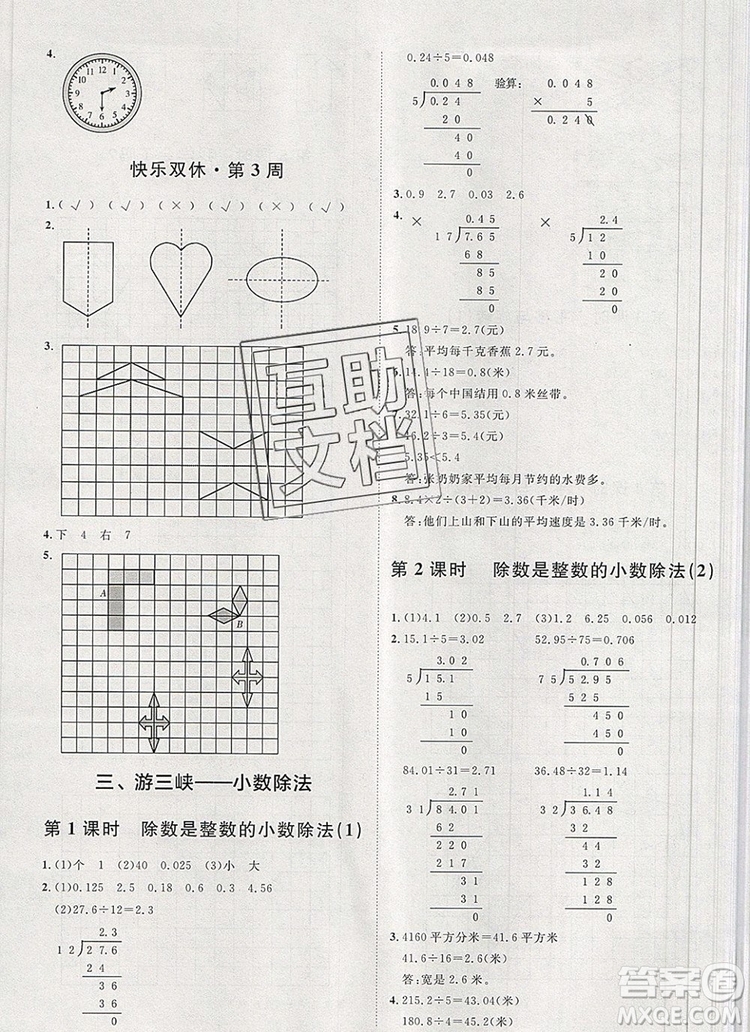 4.
快乐双休·第3周
1.(√) (√) (×) (√) (×) (√)
2.
3.
4.下 4 右 7
5.
A
B
三、游三峡——小数除法
第1课时 除数是整数的小数除法(1)
1.(1)个 1 (2)40 0.025 (3)小 大
2.(1)0.125 2.5 0.4 3 4.56
(2)27.6÷12=2.3
2.3
12 27.6
24
36
36
0
0.24÷5=0.048
0.048 验算: 0.048
5 0.24 × 5
20 0.240
40
40
0
3.0.9 2.7 0.03 2.6
4.
× 0.45 × 2.4
17 7.65 5 12
68 10
85 20
85 20
0 0
5.18.9÷7=2.7(元)
答:平均每千克香蕉2.7元。
6.14.4÷18=0.8(米)
答:每个中国结用0.8米丝带。
7.32.1÷6=5.35(元)
16.2÷3=5.4(元)
5.35<5.4
答:张奶奶家平均每月节约的水费多。
8.8.4×2÷(3+2)=3.36(千米/时)
答:他们上山和下山的平均速度是3.36千米/时。
第2课时 除数是整数的小数除法(2)
1.(1)4.1 (2)0.5 2.7 (3)1.2 6.25 0.056 0.012
2.15.1÷5=3.02 52.95÷75=0.706
3.02 0.706
5 15.1 75 52.95
15 525
10 450
10 450
0 0
84.01÷31=2.71 36.48÷32=1.14
2.71 1.14
31 84.01 32 36.48
62 32
220 44
217 32
31 128
31 128
0 0
3.4160平方分米=41.6平方米
41.6÷16=2.6(米)
答:宽是2.6米。
4.215.2÷5=43.04(米)
180.8÷4=45.2(米)
互助
文档
答案圈
MXQE.COM